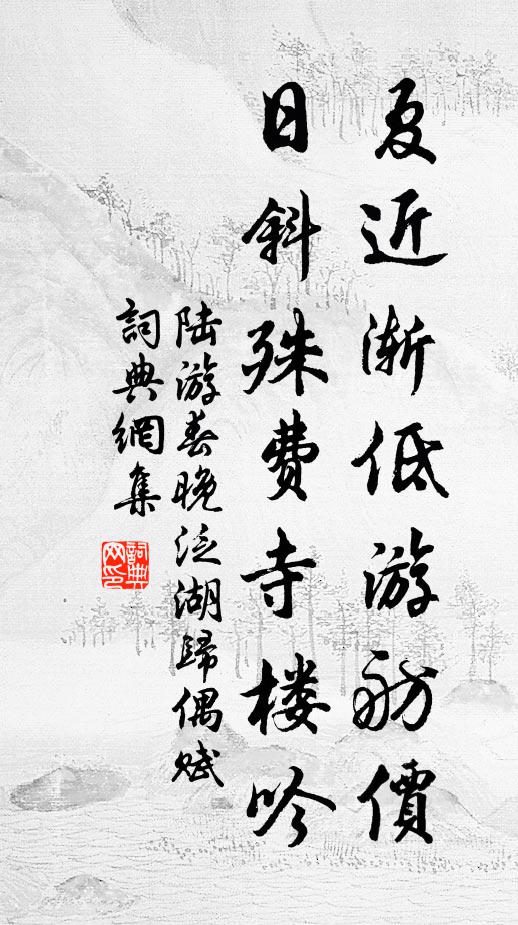 夏近渐低游舫價
日斜殊费寺楼吟
陆游春晚泛湖歸偶赋
詞典網集
詞典网印